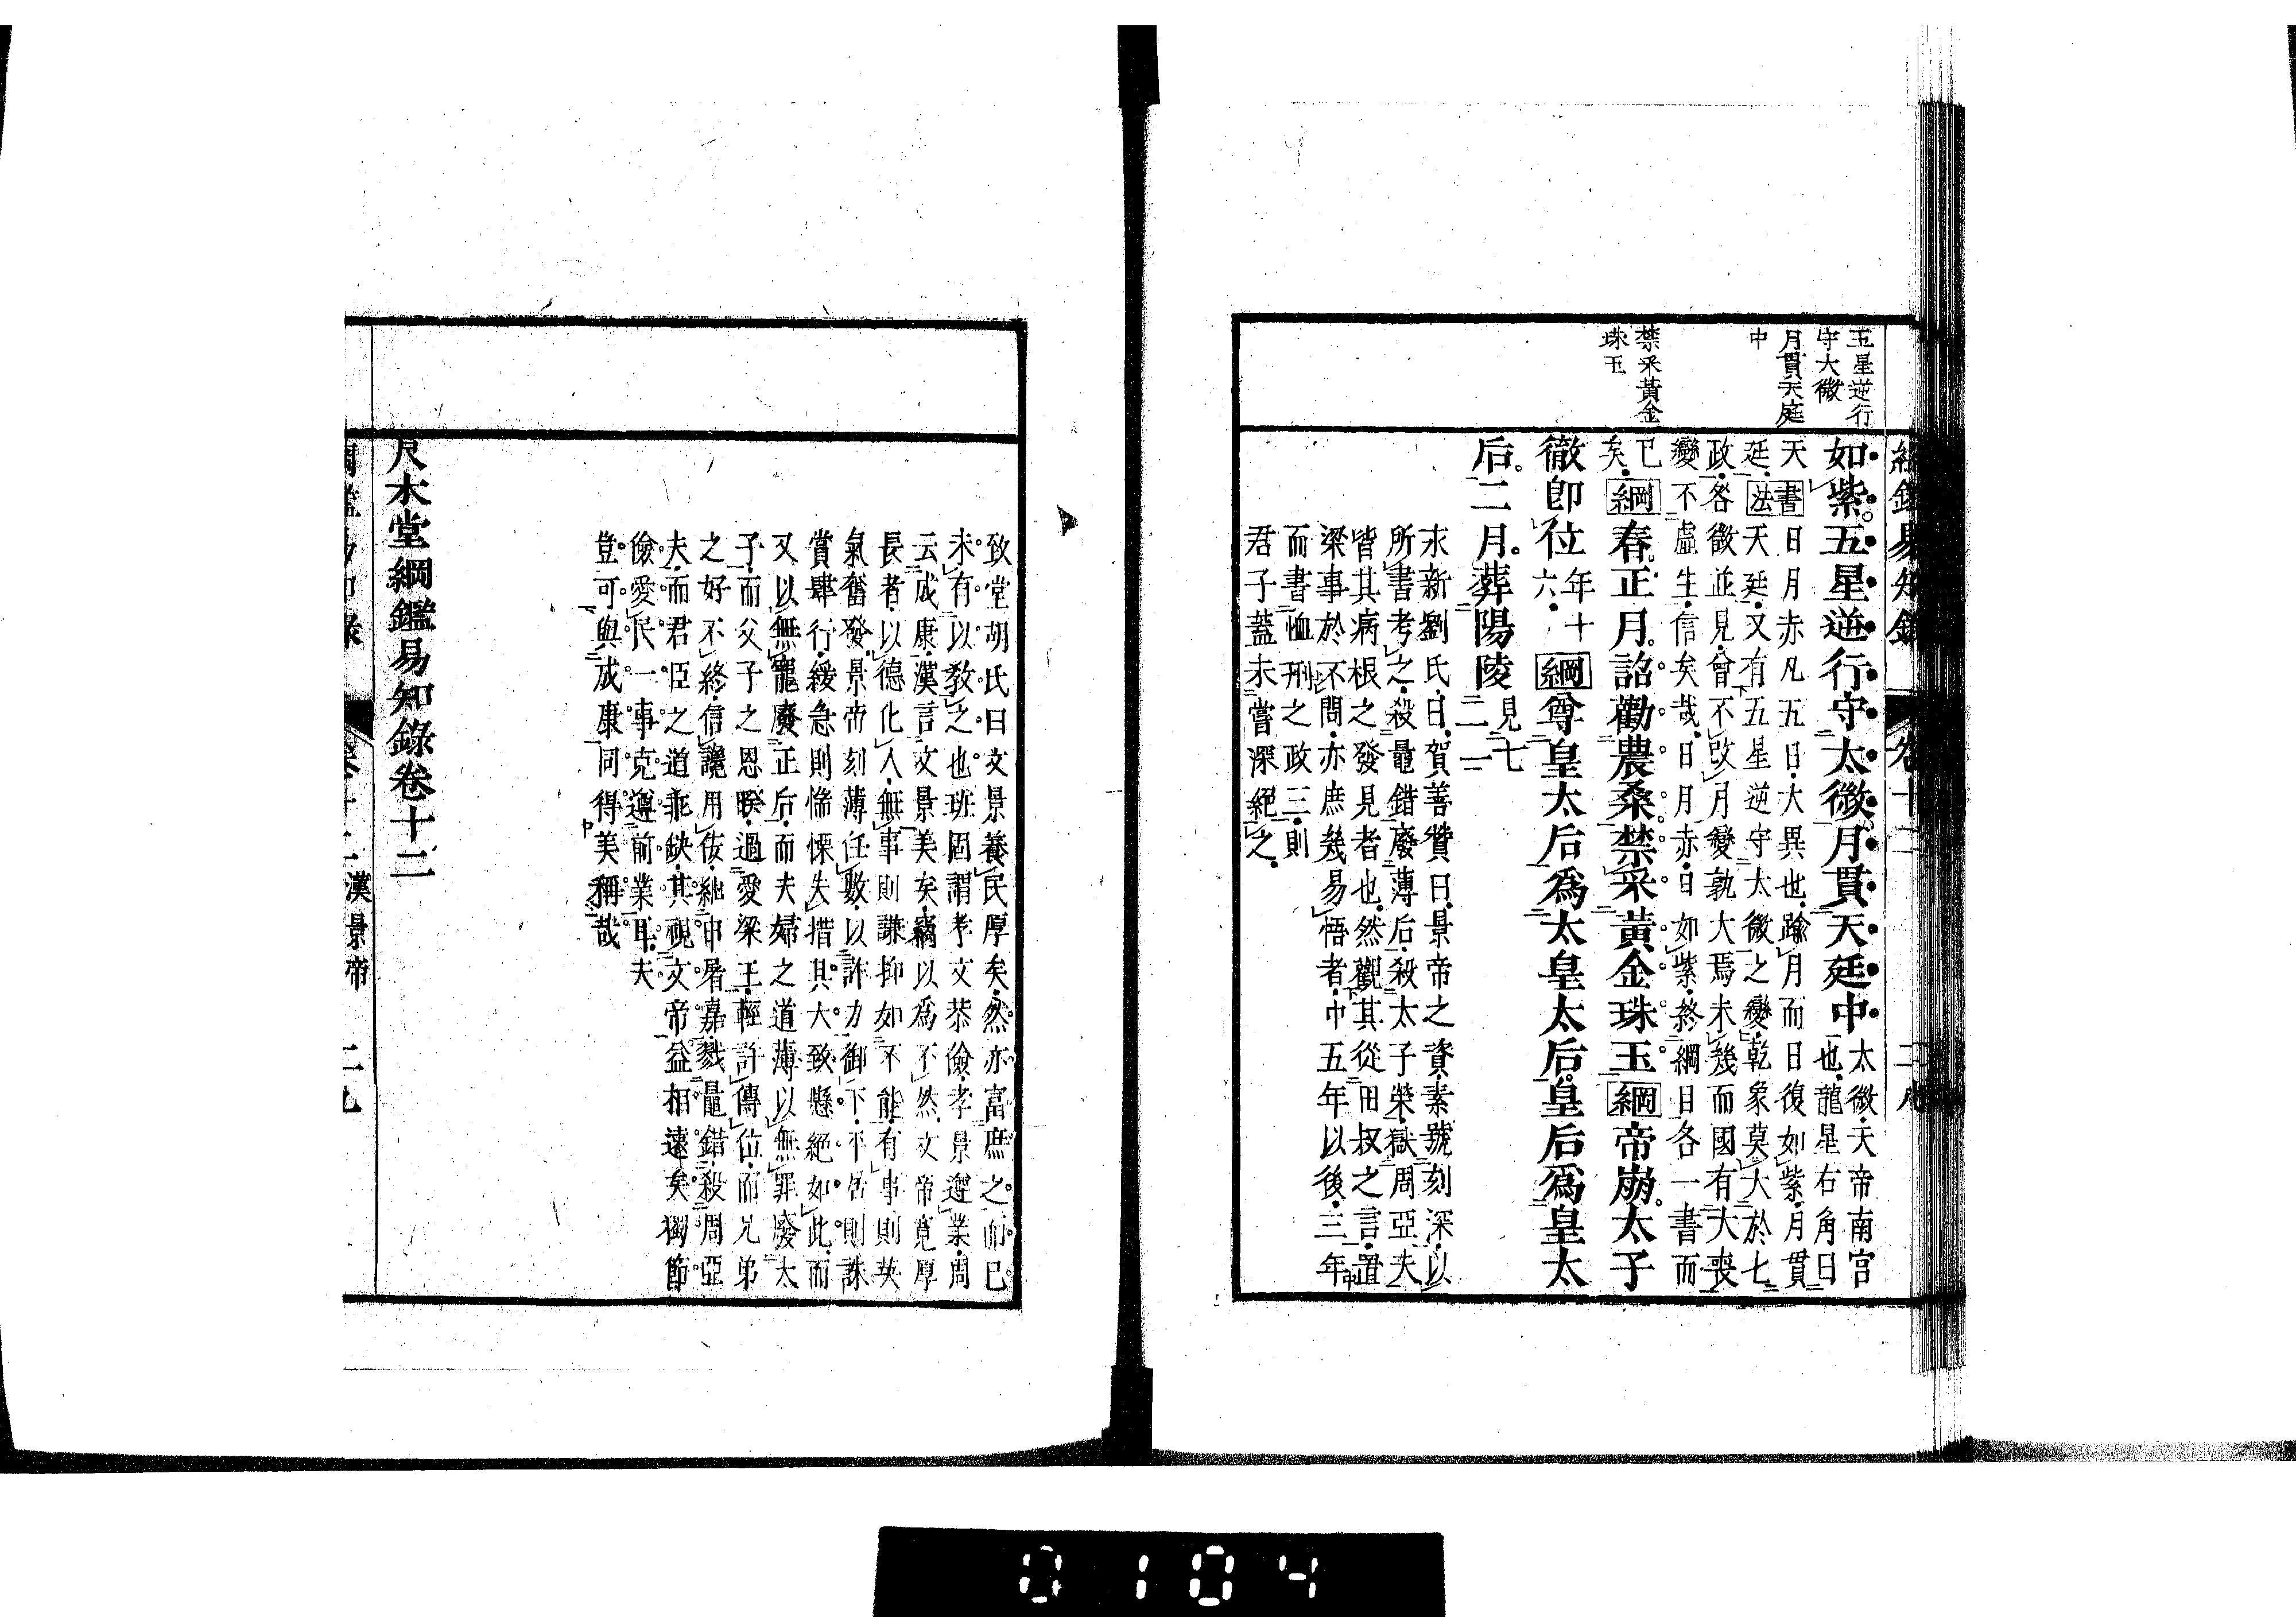 綱鑑易知錄
卷十二
二八
五星逆行
守大微
月貫天庭
中
禁采黃金
珠玉
如紫五星逆行守太微月貫天廷中太微天帝南宮
也龍星右角曰
天書日月赤凡五日大異也踰月而日復如紫月貫
廷法天廷又有五星逆守太微之變乾象莫大於七
政各徵並見曾不攺月變孰大焉未幾而國有大喪
變不虛生信矣哉日月赤日如紫終綱目各一書而
已
矣綱春正月詔勸農桑禁采黃金珠玉綱帝崩太子
徹卽位年十
六綱尊皇太后爲太皇太后皇后爲皇太
后二月葬陽陵見七
二一一
永新劉氏曰賀善贊曰景帝之資素號刻深以
所書考之殺鼂錯廢薄后殺太子榮獄周亞夫
皆其病根之發見者也然觀其從田叔之言置
梁事於不問亦庶幾易悟者中五年以後三年
而書恤刑之政三則
君子蓋未嘗深絕之
致堂胡氏曰文景養民厚矣然亦富庶之而已
未有以教之也班固謂孝文恭儉孝景遵業周
云成康漢言文景美矣竊以爲不然文帝寬厚
長者以德化人無事則謙抑如不能有事則英
氣奮發景帝刻薄任數以詐力御下平居則誅
賞肆行緩急則惴慄失措其大致懸絕如此而
又以無寵廢正后而夫婦之道薄以無罪廢太
子而父子之恩睽過愛梁王輕許傳位而兄弟
之好不終信讒用佞絀申屠嘉戮鼂錯殺周亞
夫而君臣之道乖缺其視文帝益相遠矣獨節
儉愛民一事克遵前業耳夫
豈可與成康同得美稱哉
尺木堂綱鑑易知錄卷十二
綱鑑易知錄
卷十二漢景帝
二九
0104